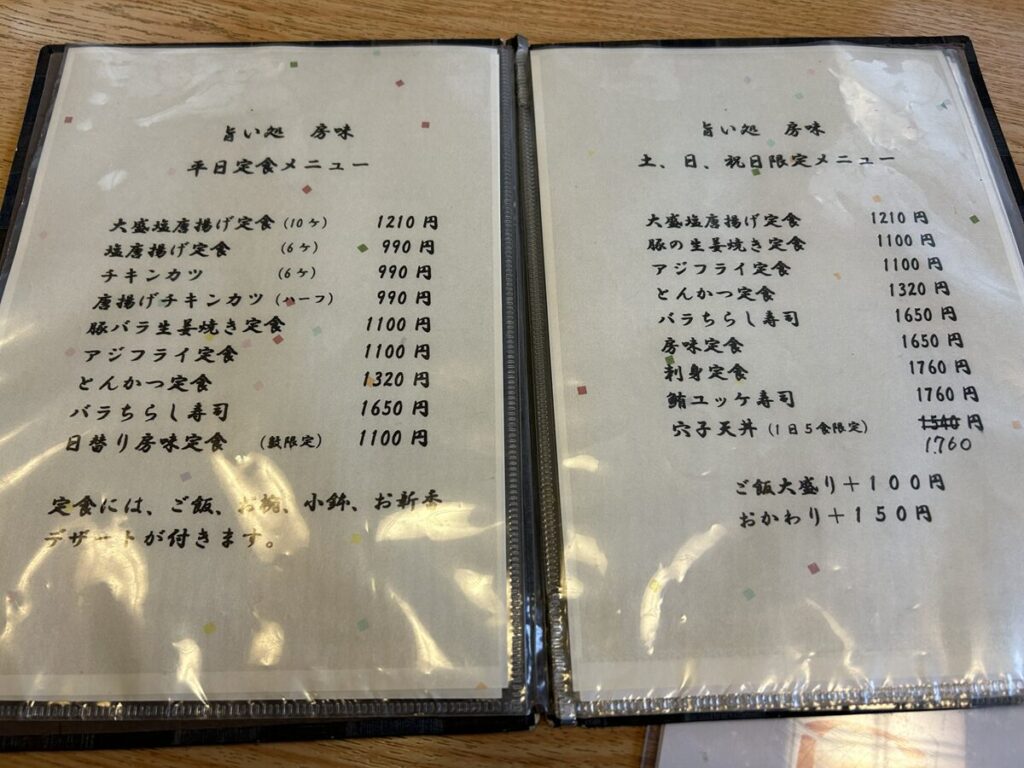 旨い処 房味
平日定食メニュー
大盛塩唐揚げ定食(10ヶ) 1210円
塩唐揚げ定食 (6ヶ) 990円
チキンカツ (6ヶ) 990円
唐揚げチキンカツ(ハーフ) 990円
豚バラ生姜焼き定食 1100円
アジフライ定食 1100円
とんかつ定食 1320円
バラちらし寿司 1650円
日替り房味定食 (数限定) 1100円
定食には、ご飯、お椀、小鉢、お新香
デザートが付きます。
旨い処 房味
土、日、祝日限定メニュー
大盛塩唐揚げ定食 1210円
豚の生姜焼き定食 1100円
アジフライ定食 1100円
とんかつ定食 1320円
バラちらし寿司 1650円
房味定食 1650円
刺身定食 1760円
鮪ユッケ寿司 1760円
穴子天丼(1日5食限定) 1540円
1760
ご飯大盛り+100円
おかわり+150円